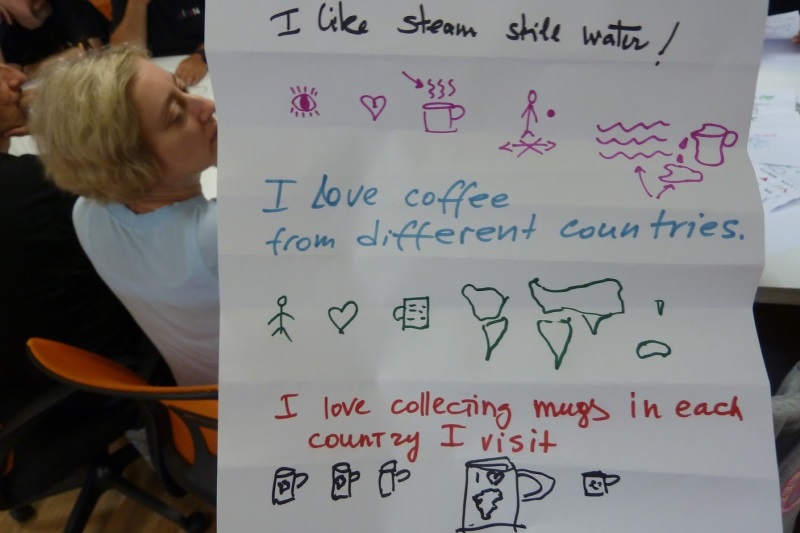 I like steam still water!
I love coffee
from different countries.
I love collecting mugs in each
country I visit